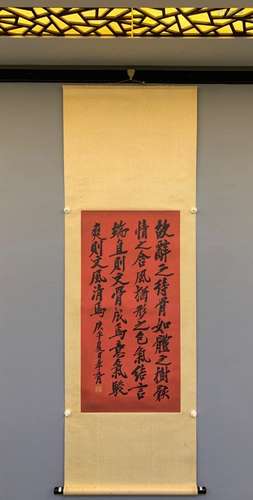 故辭之待骨如體之樹骸
情之含風猶形之包氣結言
端直則文骨成焉意氣駿
爽則文風清焉 庚午夏日